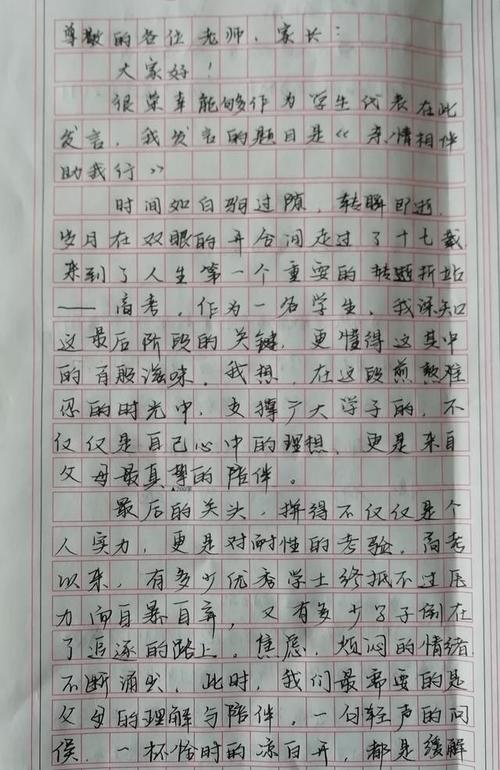 尊敬的各位老师、家长：
大家好！
很荣幸能够作为学生代表在此
发言，我发言的题目是《亲情相伴
助我行》
时间如白驹过隙，转瞬即逝，
岁月在双眼的开合间走过了十七载
来到了人生第一个重要的转折站
——高考，作为一名学生，我深知
这最后阶段的关键，更懂得这其中
的百般滋味。我想，在这段煎熬难
忍的时光中，支撑广大学子的，不
仅仅是自己心中的理想，更是来自
父母最真挚的陪伴。
最后的关头，拼得不仅仅是个
人实力，更是对耐性的考验。高考
以来，有多少优秀学士终抵不过压
力而自暴自弃，又有多少学子倒在
了追逐的路上。焦虑，烦闷的情绪
不断涌出，此时，我们最需要的是
父母的理解与陪伴，一句轻声的问
候，一杯恰时的凉白开，都是缓解